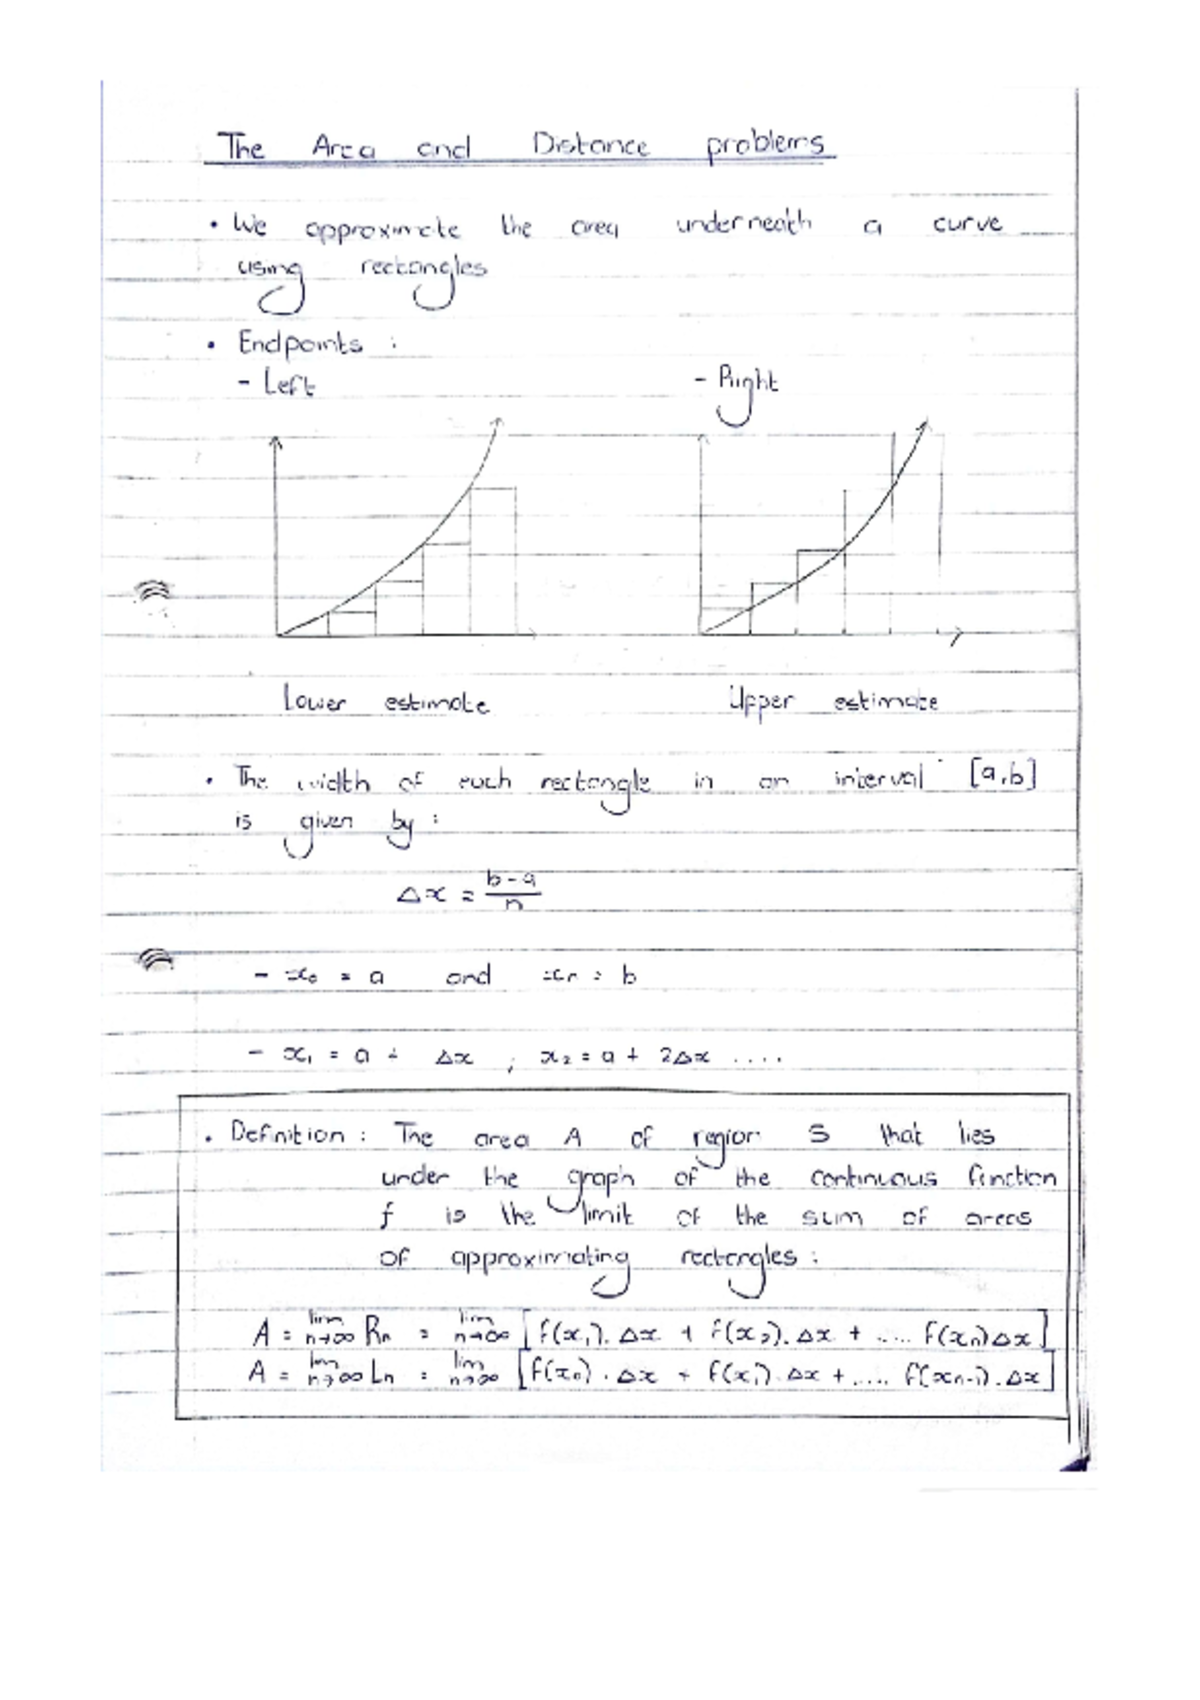 The Area and Distance problems
• We approximate the area underneath a curve
using rectangles
• Endpoints :
- Left - Right
Lower estimate Upper estimate
• The width of each rectangle in an interval [a,b]
is given by :
Δx = b-a
n
- x₀ = a and xn = b
- x₁ = a + Δx ; x₂ = a + 2Δx ....
• Definition : The area A of region S that lies
under the graph of the continuous function
f is the limit of the sum of areas
of approximating rectangles :
A = lim n→∞ Rn = lim n→∞ [f(x₁). Δx + f(x₂). Δx + .... f(xn)Δx]
A = lim n→∞ Ln = lim n→∞ [f(x₀) . Δx + f(x₁). Δx + .... f(xn-1). Δx]